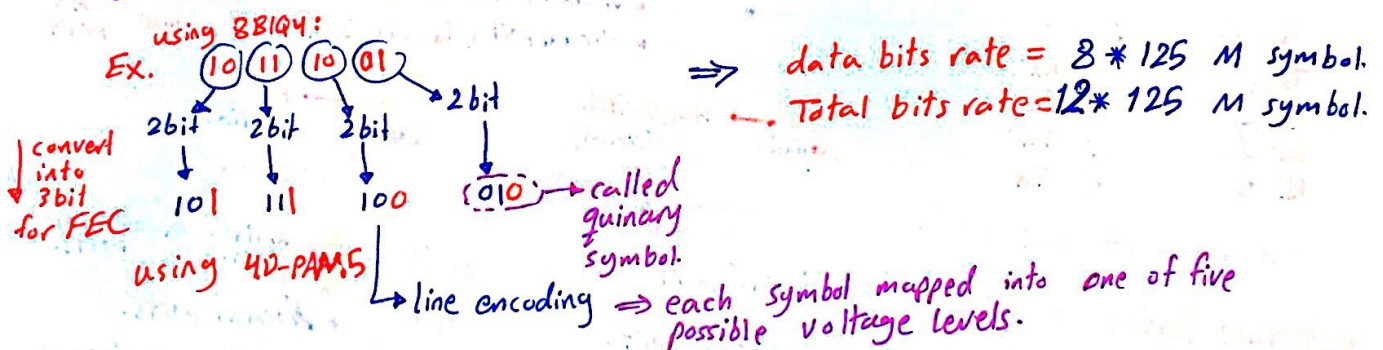 using 8B1Q4:
Ex. 10 11 10 01
2bit 2bit 2bit 2bit
convert into 3bit for FEC
101 111 100 010
called quinary symbol.
using 4D-PAM5
line encoding ⇒ each symbol mapped into one of five
possible voltage levels.
⇒ data bits rate = 8 * 125 M symbol.
Total bits rate = 12 * 125 M symbol.